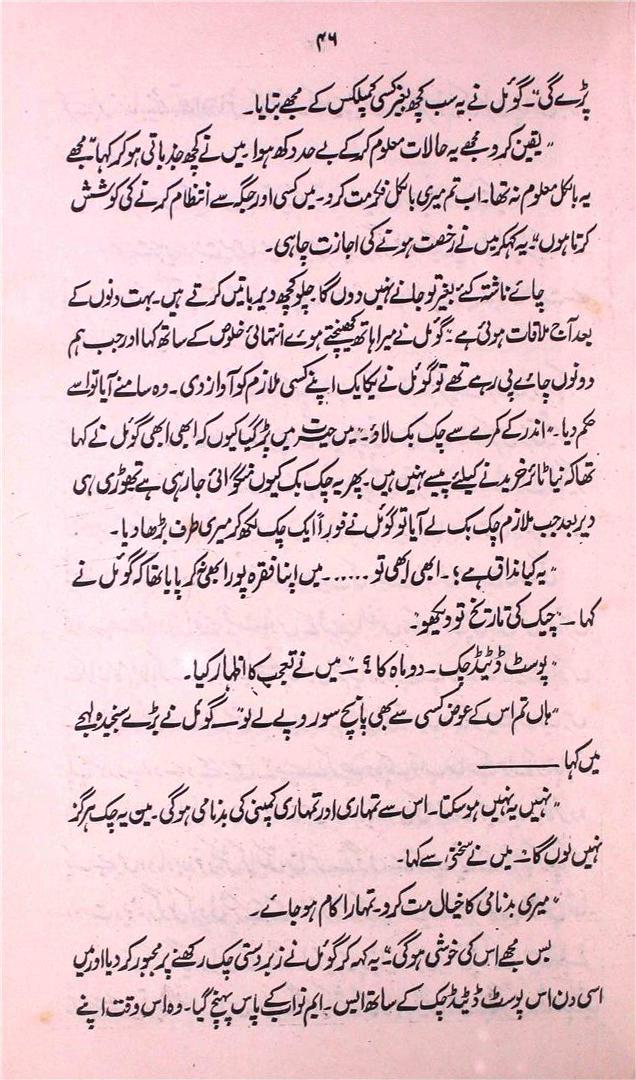 ۴۶
پڑے گی"۔ گوئل نے یہ سب کچھ بغیر کسی کمپلکس کے مجھے بتایا۔
"یقین کرو مجھے یہ حالات معلوم کر کے بے حد دکھ ہوا۔ میں نے کچھ جذباتی ہو کر کہا "مجھے
یہ بالکل معلوم نہ تھا۔ اب تم میری بالکل فکر مت کرو۔ میں کسی اور جگہ سے انتظام کرنے کی کوشش
کرتا ہوں"۔ یہ کہکر میں نے رخصت ہونے کی اجازت چاہی۔
چائے ناشتہ کے بغیر تو جانے نہیں دوں گا۔ چلو کچھ دیر باتیں کرتے ہیں۔ بہت دنوں کے
بعد آج ملاقات ہوئی ہے"۔ گوئل نے میرا ہاتھ کھینچتے ہوئے انتہائی خلوص کے ساتھ کہا اور جب ہم
دونوں چائے پی رہے تھے تو گوئل نے یکایک اپنے کسی ملازم کو آواز دی۔ وہ سامنے آیا تو اسے
حکم دیا۔ "اندر کے کمرے سے چک بک لاؤ۔" میں حیرت میں پڑ گیا کیوں کہ ابھی ابھی گوئل نے کہا
تھا کہ نیا ٹائر خریدنے کیلئے پیسے نہیں ہیں۔ پھر یہ چک بک کیوں منگوائی جا رہی ہے تھوڑی ہی
دیر بعد جب ملازم چک بک لے آیا تو گوئل نے فوراً ایک چک لکھ کر میری طرف بڑھا دیا۔
"یہ کیا مذاق ہے؛۔ ابھی ابھی تو ...... میں اپنا فقرہ پورا بھی نہ کر پایا تھا کہ گوئل نے
کہا ــ "چیک کی تاریخ تو دیکھو"۔
"پوسٹ ڈیٹیڈ چک۔ دو ماہ کا؟ ــ میں نے تعجب کا اظہار کیا۔
"ہاں تم اس کے عوض کسی سے بھی پانچ سو روپے لے لو"ــ گوئل نے بڑے سنجیدہ لہجے
میں کہا ــــــــ
"نہیں یہ نہیں ہو سکتا۔ اس سے تمہاری اور تمہاری کمپنی کی بدنامی ہوگی۔ میں یہ چک ہرگز
نہیں لوں گا"۔ میں نے سختی سے کہا۔
"میری بدنامی کا خیال مت کرو۔ تمہارا کام ہو جائے۔
بس مجھے اس کی خوشی ہوگی"۔ یہ کہہ کر گوئل نے زبردستی چک رکھنے پر مجبور کر دیا اور میں
اسی دن اس پوسٹ ڈیٹیڈ چک کے ساتھ ایس۔ ایم نواب کے پاس پہنچ گیا۔ وہ اس وقت اپنے